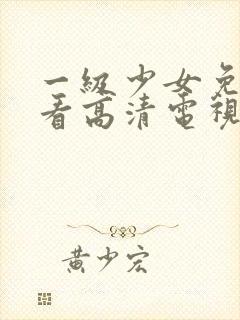 一級少女免
看高清電視
黃少宏